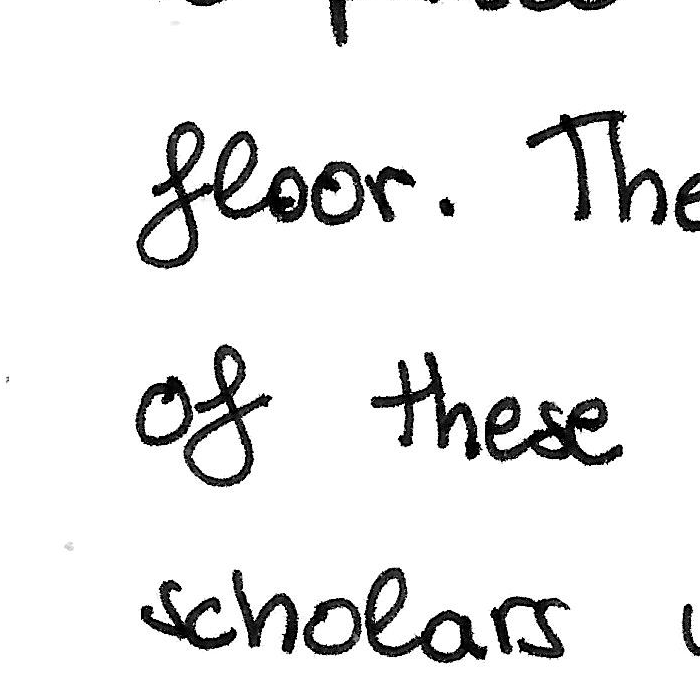 floor. The
of these
scholars